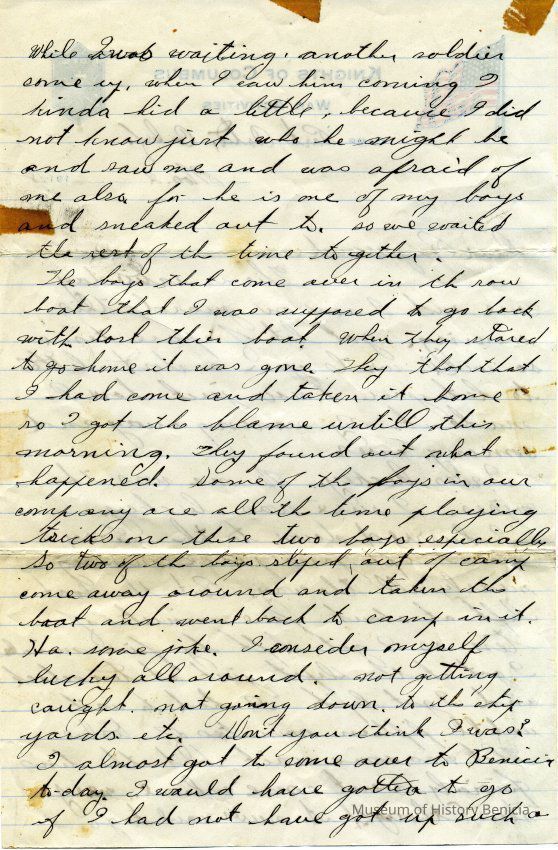 While I was waiting. another soldier
come up, when I saw him coming I
kinda hid a little, because I did
not know just who he might be
and saw me and was afraid of
me also for he is one of my boys
and sneaked out to. so we waited
the rest of th time together.
The boys that come over in th row
boat that I was supposed to go back
with lost thier boat. When they stared
to go home it was gone. They thot that
I had come and taken it home
so I got the blame untill this
morning. They found out what
happened. Some of th boys in our
company are all the time playing
tricks on these two boys especially
So two of th boys steped out of camp
come away around and taken the
boat and went back to camp in it.
Ha. some joke. I consider myself
lucky all around. not getting
caught. not going down to th ship
yards etc. Dont you think I was?
I almost got to come over to Benicia
to-day. I would have gotten to go
if I had not have got up such a
KNIGHTS OF COLUMBUS
WAR ACTIVITIES
Museum of History Benicia